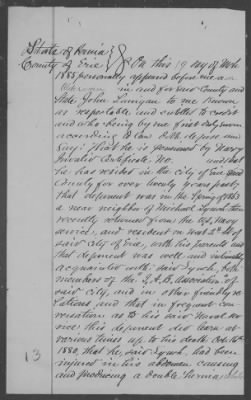 State of Penna
County of Erie } On this 19 day of Feb.
1885 personally appeared before me a
in and for said County and
State, John Lanigan to me known
as respectable and entitled to credit
and who being by me first duly sworn
according to law doth depose and
say: that he is pensioned by Navy
Invalid Certificate, No. and that
he has resided in the city of Erie said
County for over twenty years past;
that deponent was in the Spring of 1865
a near neighbor of Michael Lynch, then
recently returned from the U.S. Navy
service, and resident on West 3rd St of
said City of Erie, with his parents and
that deponent was well and intimately
acquainted with said Lynch, both
members of the Association of
said city, and in other friendly re-
lations, and that in frequent con-
versation as to his said Naval ser-
vice; this deponent did learn at
various times up to his death Oct. 16th
1880, that he, said Lynch, had been
injured in his abdomen causing
and producing a double hernia
13